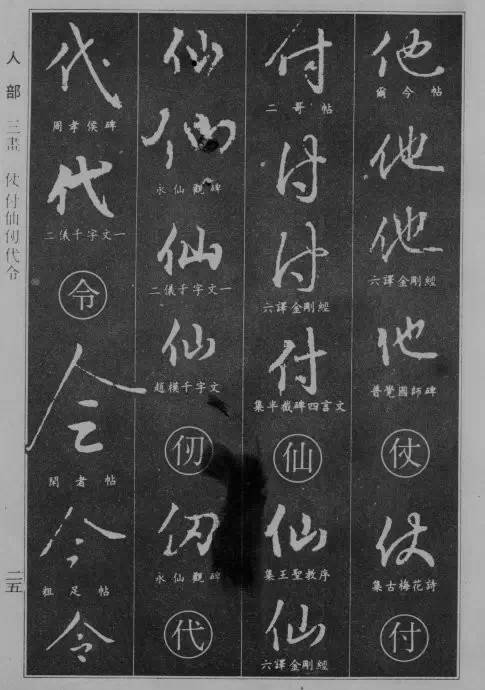 人部 三畫 仗付仙仞代令
二五
他
爾今帖
他
他
六譯金剛經
他
普覺國師碑
仗
仗
集古梅花詩
付
付
二哥帖
付
付
六譯金剛經
付
集半截碑四言文
仙
仙
集王聖教序
仙
六譯金剛經
仙
仙
永仙觀碑
仙
二儀千字文一
仙
趙模千字文
仞
仞
永仙觀碑
代
代
周孝侯碑
代
二儀千字文一
令
令
闊者帖
令
粗足帖
令